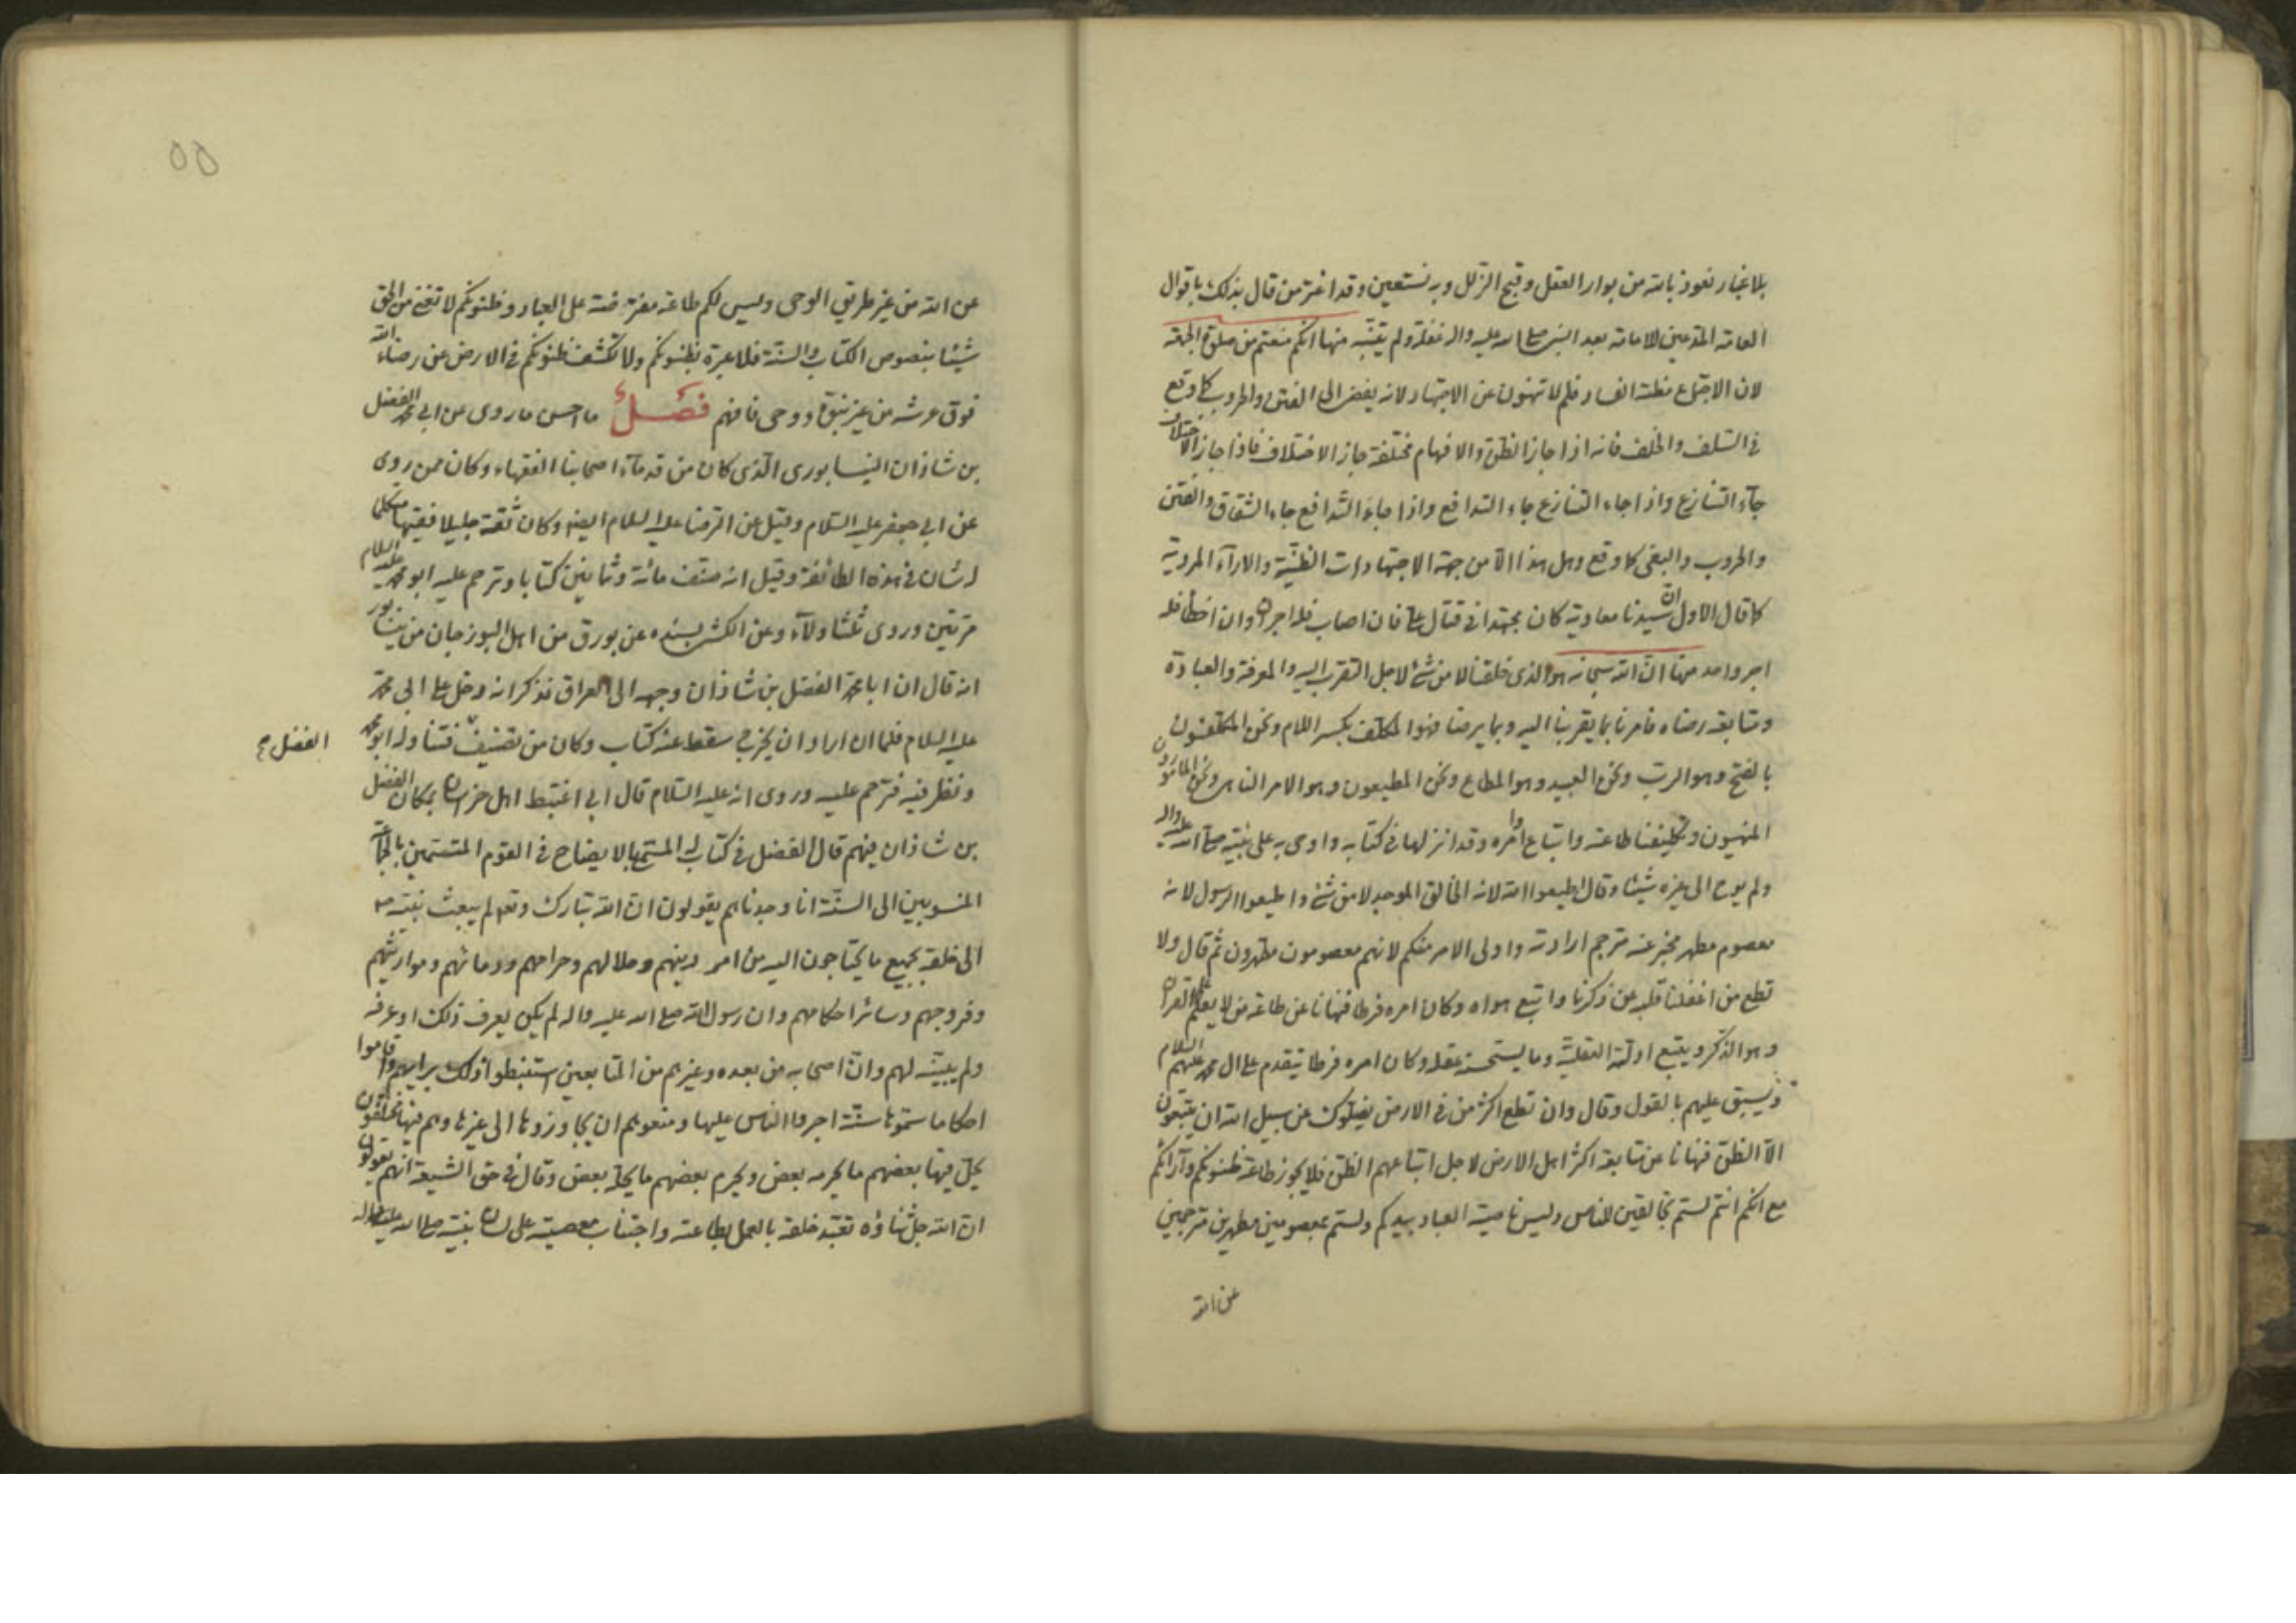 بلا غبار نعوذ بالله من بوار العقل وقبح الزلل وبه نستعين وقد اغتر من قال بذلك باقوال
العامة المدعين للامامة بعد النبي صلى الله عليه واله غفلة ولم يتنبه منها انكم منعتم من صلوة الجمعة
لان الاجتماع مظنة الفساد فلم لا تنهون عن الاجتهاد لانه يفضى الى الفتن والحروب كما وقع
فى السلف والخلف فانه اذا جاز الظن والافهام مختلفة جاز الاختلاف فاذا جاز الاختلاف
جاء التنازع واذا جاء التنازع جاء التدافع واذا جاء التدافع جاء الشقاق والفتن
والحروب والبغى كما وقع وهل هذا الا من جهة الاجتهادات الظنية والاراء المردية
كما قال الاول ان سيدنا معاوية كان مجتهدا فى قتال على فان اصاب فله اجران وان اخطا فله
اجر واحد منها ان الله سبحانه هو الذى خلقنا لا من شئ لاجل التقرب اليه والمعرفة والعبادة
ومتابعة رضاه فامرنا بما يقربنا اليه وبما يرضا فهو المكلف بكسر اللام ونحن المكلفون
بالفتح وهو الرب ونحن العبيد وهو المطاع ونحن المطيعون وهو الامر الناهى ونحن المأمورون
المنهيون وتكليفنا طاعته واتباع اوامره وقد انزلها فى كتابه واوحى به على نبيه صلى الله عليه واله
ولم يوح الى غيره شيئا وقال اطيعوا الله لانه الخالق الموجد لا من شئ واطيعوا الرسول لانه
معصوم مطهر مخبر عنه مترجم ارادته واولى الامر منكم لانهم معصومون مطهرون ثم قال ولا
تطع من اغفلنا قلبه عن ذكرنا واتبع هواه وكان امره فرطا فنهانا عن طاعة من لا يعلم علم القران
وهو الذكر ويتبع ادلته العقلية وما يستحسنه عقله وكان امره فرطا يتقدم على ال محمد عليهم السلام
ويسبق عليهم بالقول وقال وان تطع اكثر من فى الارض يضلوك عن سبيل الله ان يتبعون
الا الظن فنهانا عن متابعة اكثر اهل الارض لاجل اتباعهم الظن فلا يجوز طاعة ظنونكم وآرائكم
مع انكم انتم لستم بخالقين للناس وليس ناصية العباد بيدكم ولستم بمعصومين مطهرين مترجمين
عن الله
٥٥
عن الله من غير طريق الوحى وليس لكم طاعة مفترضة على العباد وظنونكم لا تغنى من الحق
شيئا بنصوص الكتاب والسنة فلا عبرة بظنونكم ولا تكشف ظنونكم فى الارض عن رضاء الله
فوق عرشه من غير نبوة ووحى فافهم فصل ما احسن ما روى عن ابى محمد الفضل
بن شاذان النيسابورى الذى كان من قدماء اصحابنا الفقهاء وكان ممن روى
عن ابى جعفر عليه السلام وقيل عن الرضا عليه السلام ايضا وكان ثقة جليلا فقيها متكلما
له شان فى هذه الطائفة وقيل انه صنف مائة وثمانين كتابا وترحم عليه ابو محمد عليه السلام
مرتين وروى ثلثا ولاء وعن الكشى بسنده عن بورق من اهل البوزجان من نيسابور
انه قال ان ابا محمد الفضل بن شاذان وجهه الى العراق فذكر انه دخل على ابى محمد
عليه السلام فلما ان اراد ان يخرج سقط عنه كتاب وكان من تصنيف فتناوله ابو محمد
الفضل
ونظر فيه فترحم عليه وروى انه عليه السلام قال انى اغتبط اهل خراسان بمكان الفضل
بن شاذان فيهم قال الفضل فى كتاب له المسمى بالايضاح فى القوم المتسمين بالجماعة
المنسوبين الى السنة انا وجدناهم يقولون ان الله تبارك وتعالى لم يبعث نبيه ص
الى خلقه بجميع ما يحتاجون اليه من امر دينهم وحلالهم وحرامهم ودمائهم ومواريثهم
وفروجهم وسائر احكامهم وان رسول الله صلى الله عليه واله لم يكن يعرف ذلك او عرفه
ولم يبينه لهم وان اصحابه من بعده وغيرهم من التابعين استنبطوا ذلك برايهم واقاموا
احكاما سموها سنة اجروا الناس عليها ومنعوهم ان يجاوزوها الى غيرها وهم فيها مختلفون
يحل فيها بعضهم ما يحرمه بعض ويحرم بعضهم ما يحله بعض وقال فى حق الشيعة انهم يقولون
ان الله جل ثناؤه تعبد خلقه بالعمل بطاعته واجتناب معصيته على لسان نبيه صلى الله عليه واله